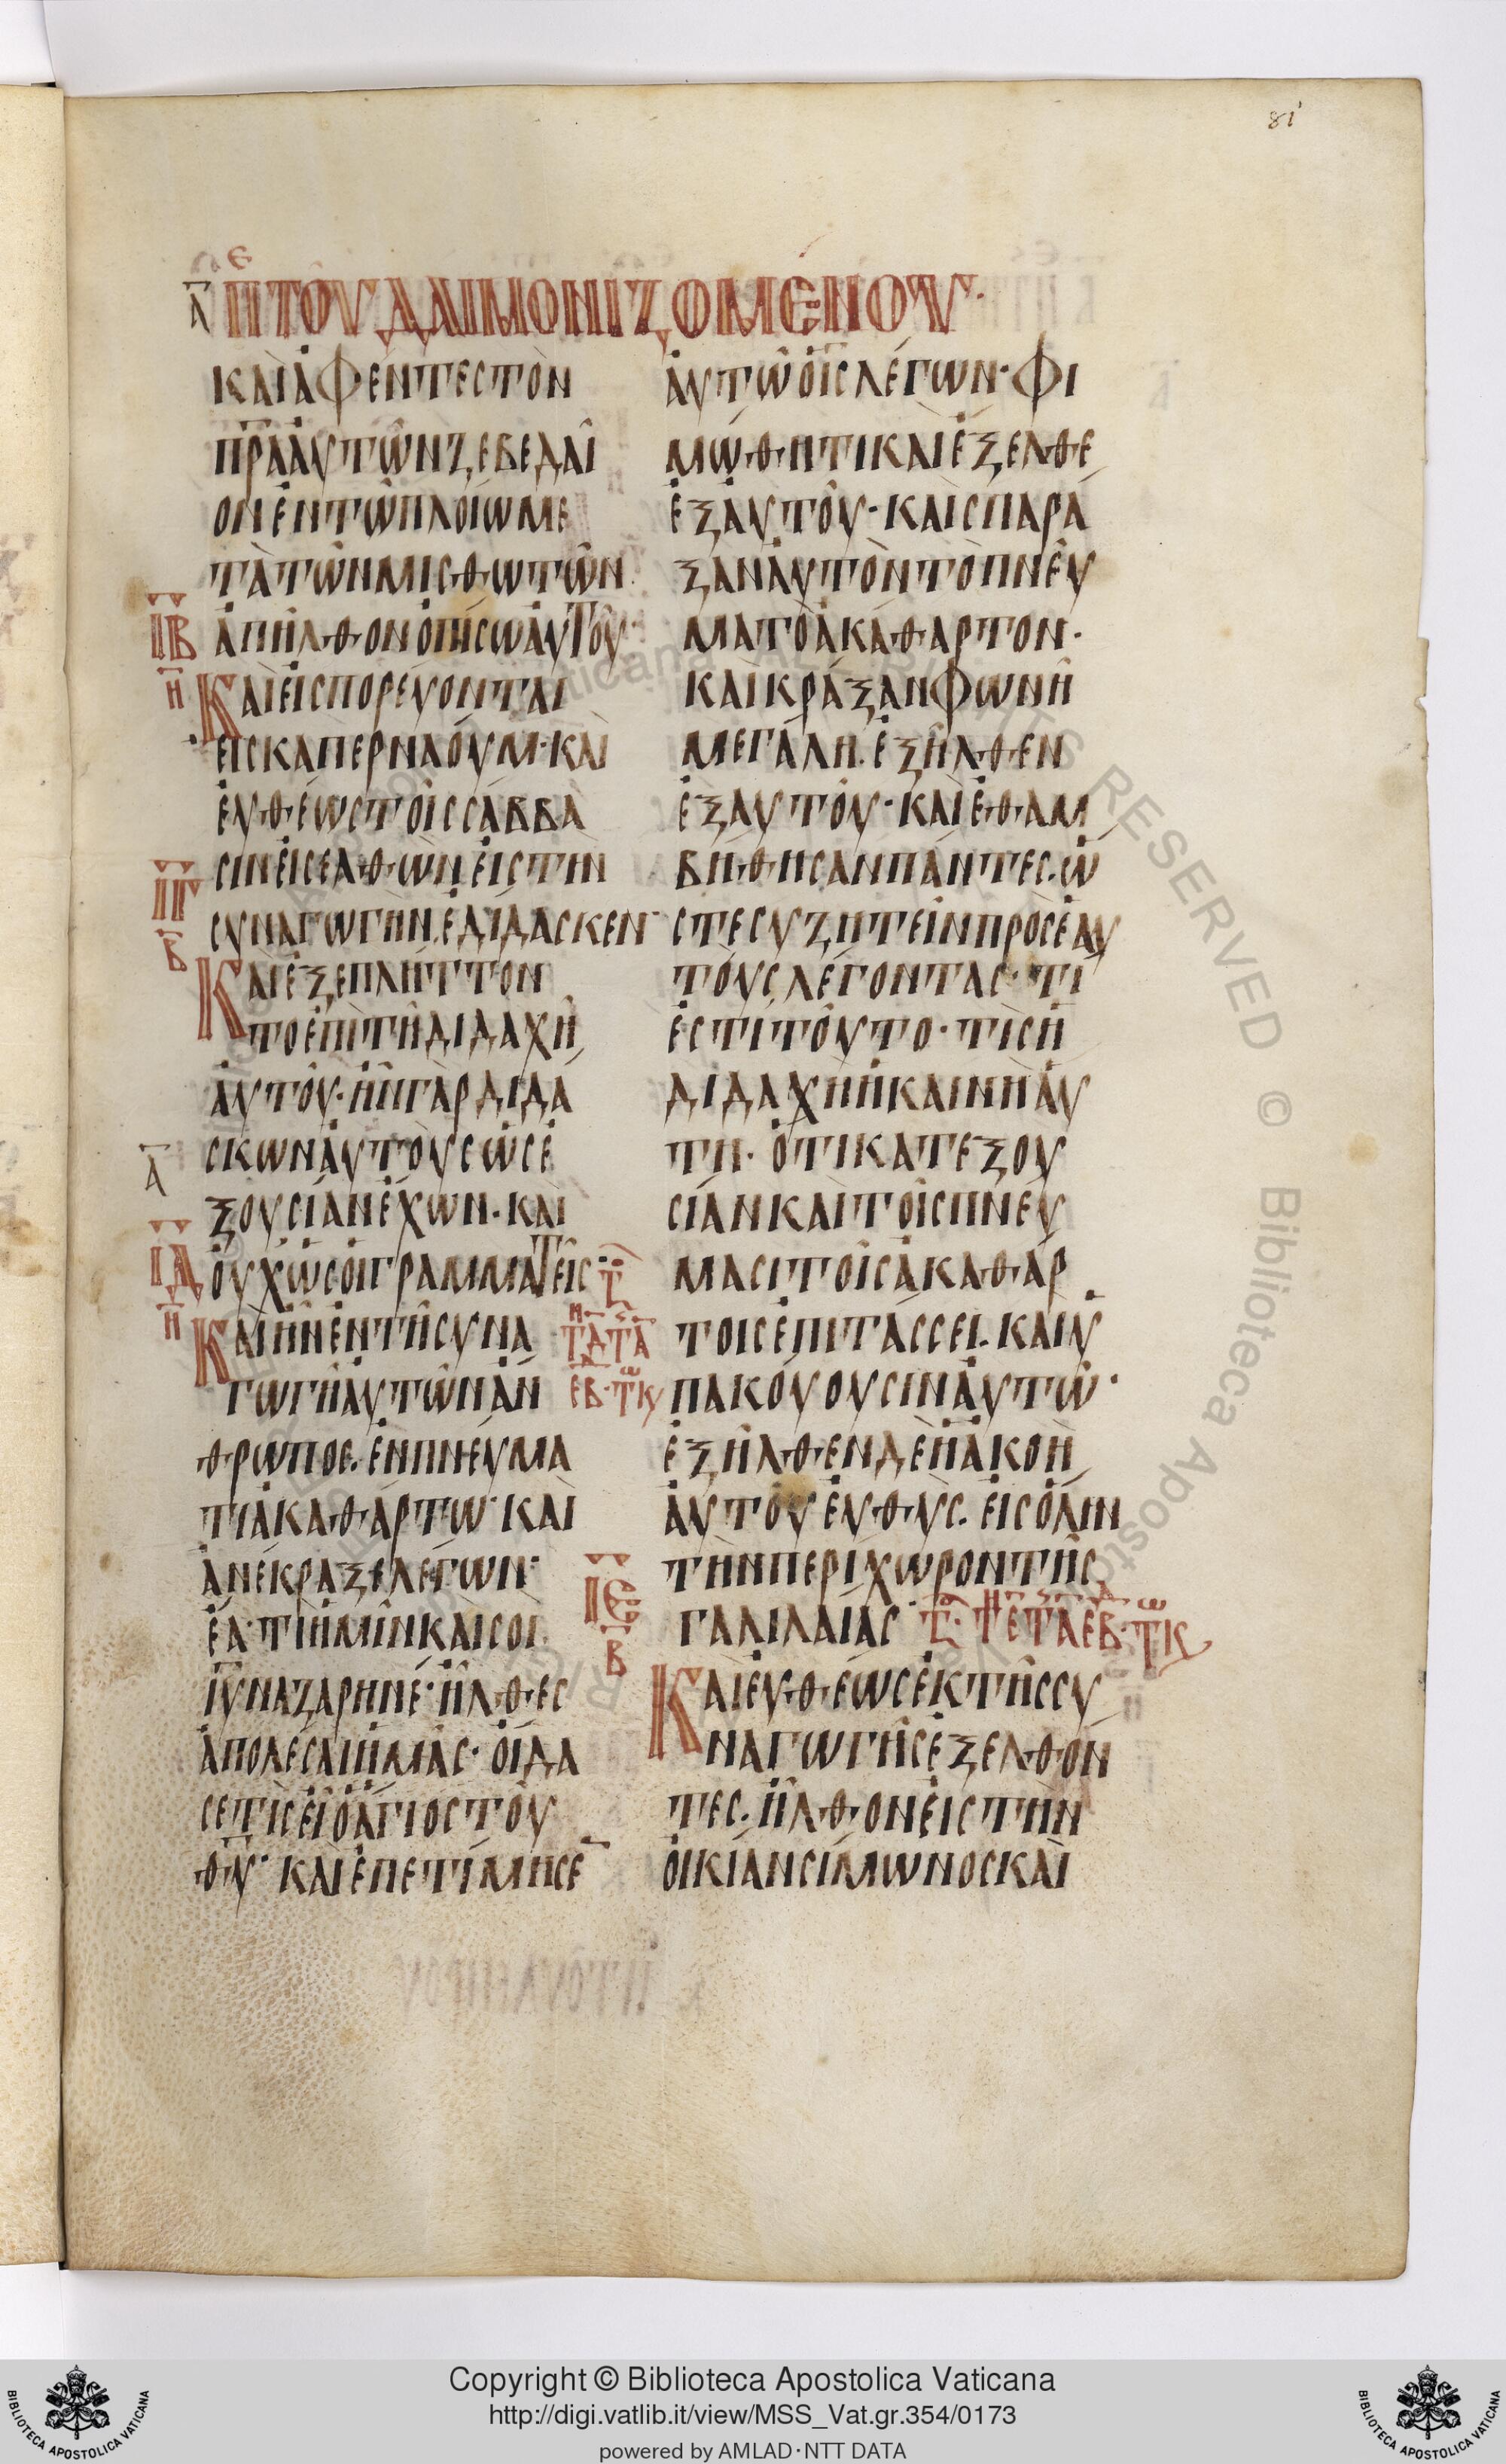 81
Α ΠΕ ΤΟΥ ΔΑΙΜΟΝΙΖΟΜΕΝΟΥ·
ΚΑΙ ΑΦΕΝΤΕΣ ΤΟΝ
ΠΡΑ ΑΥΤΩΝ ΖΕΒΕΔΑΙ
ΟΝ ΕΝ ΤΩ ΠΛΟΙΩ ΜΕ
ΤΑ ΤΩΝ ΜΙΣΘΩΤΩΝ
ΙΒ ΑΠΗΛΘΟΝ ΟΠΙΣΩ ΑΥΤΟΥ·
Η ΚΑΙ ΕΙΣΠΟΡΕΥΟΝΤΑΙ
ΕΙΣ ΚΑΠΕΡΝΑΟΥΜ· ΚΑΙ
ΕΥΘΕΩΣ ΤΟΙΣ ΣΑΒΒΑ
ΣΙΝ ΕΙΣΕΛΘΩΝ ΕΙΣ ΤΗΝ
ΙΓ ΣΥΝΑΓΩΓΗΝ. ΕΔΙΔΑΣΚΕΝ·
Β ΚΑΙ ΕΞΕΠΛΗΤΤΟΝ
ΤΟ ΕΠΙ ΤΗ ΔΙΔΑΧΗ
ΑΥΤΟΥ· ΗΝ ΓΑΡ ΔΙΔΑ
Α ΣΚΩΝ ΑΥΤΟΥΣ ΩΣ Ε
ΞΟΥΣΙΑΝ ΕΧΩΝ· ΚΑΙ
ΙΔ ΟΥΧ ΩΣ ΟΙ ΓΡΑΜΜΑΤΕΙΣ·
Η ΚΑΙ ΗΝ ΕΝ ΤΗ ΣΥΝΑ
ΓΩΓΗ ΑΥΤΩΝ ΑΝ
ΘΡΩΠΟΣ. ΕΝ ΠΝΕΥΜΑ
ΤΙ ΑΚΑΘΑΡΤΩ· ΚΑΙ
ΑΝΕΚΡΑΞΕ ΛΕΓΩΝ·
ΕΑ· ΤΙ ΗΜΙΝ ΚΑΙ ΣΟΙ
ΙΥ ΝΑΖΑΡΗΝΕ· ΗΛΘΕΣ
ΑΠΟΛΕΣΑΙ ΗΜΑΣ· ΟΙΔΑ
ΣΕ ΤΙΣ ΕΙ Ο ΑΓΙΟΣ ΤΟΥ
ΘΥ· ΚΑΙ ΕΠΕΤΙΜΗΣΕ
ΑΥΤΩ Ο ΙΣ ΛΕΓΩΝ· ΦΙ
ΜΩΘΗΤΙ ΚΑΙ ΕΞΕΛΘΕ
ΕΞ ΑΥΤΟΥ· ΚΑΙ ΣΠΑΡΑ
ΞΑΝ ΑΥΤΟΝ ΤΟ ΠΝΕΥ
ΜΑ ΤΟ ΑΚΑΘΑΡΤΟΝ·
ΚΑΙ ΚΡΑΞΑΝ ΦΩΝΗ
ΜΕΓΑΛΗ. ΕΞΗΛΘΕΝ
ΕΞ ΑΥΤΟΥ· ΚΑΙ ΕΘΑΜ
ΒΗΘΗΣΑΝ ΠΑΝΤΕΣ. Ω
ΣΤΕ ΣΥΖΗΤΕΙΝ ΠΡΟΣ ΕΑΥ
ΤΟΥΣ ΛΕΓΟΝΤΑΣ· ΤΙ
ΕΣΤΙ ΤΟΥΤΟ· ΤΙΣ Η
ΔΙΔΑΧΗ Η ΚΑΙΝΗ ΑΥ
ΤΗ· ΟΤΙ ΚΑΤ ΕΞΟΥ
ΣΙΑΝ ΚΑΙ ΤΟΙΣ ΠΝΕΥ
ΜΑΣΙ ΤΟΙΣ ΑΚΑΘΑΡ
ΤΟΙΣ ΕΠΙΤΑΣΣΕΙ. ΚΑΙ Υ
ΠΑΚΟΥΟΥΣΙΝ ΑΥΤΩ·
ΕΞΗΛΘΕΝ ΔΕ Η ΑΚΟΗ
ΑΥΤΟΥ ΕΥΘΥΣ. ΕΙΣ ΟΛΗΝ
ΤΗΝ ΠΕΡΙΧΩΡΟΝ ΤΗΣ
ΙΕ ΓΑΛΙΛΑΙΑΣ·
Β ΚΑΙ ΕΥΘΕΩΣ ΕΚ ΤΗΣ ΣΥ
ΝΑΓΩΓΗΣ ΕΞΕΛΘΟΝ
ΤΕΣ. ΗΛΘΟΝ ΕΙΣ ΤΗΝ
ΟΙΚΙΑΝ ΣΙΜΩΝΟΣ ΚΑΙ
Copyright © Biblioteca Apostolica Vaticana
http://digi.vatlib.it/view/MSS_Vat.gr.354/0173
powered by AMLAD·NTT DATA
BIBLIOTECA APOSTOLICA VATICANA
BIBLIOTECA APOSTOLICA VATICANA